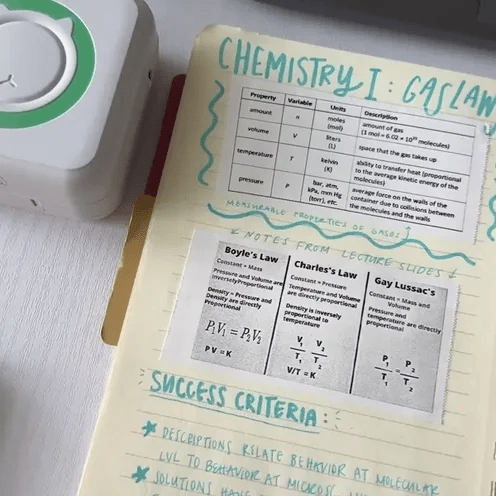 CHEMISTRY I : GAS LAW
Property Variable Units Description
amount n moles (mol) amount of gas (1 mol = 6.02 × 10²³ molecules)
volume V liters (L) space that the gas takes up
temperature T kelvin (K) ability to transfer heat (proportional to the average kinetic energy of the molecules)
pressure P bar, atm, kPa, mm Hg (torr), etc. average force on the walls of the container due to collisions between the molecules and the walls
MEASURABLE PROPERTIES OF GASES ↑
↓ NOTES FROM LECTURE SLIDES ↓
Boyle's Law
Constant = Mass
Pressure and Volume are
inverselyProportional
Density = Pressure and
Density are directly
Proportional
P₁V₁ = P₂V₂
PV=K
Charles's Law
Constant = Pressure
Temperature and Volume
are directly proportional
Density is inversly
proportional to
temperature
V₁/T₁ = V₂/T₂
V/T =K
Gay Lussac's
Constant = Mass and
Volume
Pressure and
temperature are directly
proportional
P₁/T₁ = P₂/T₂
SUCCESS CRITERIA :
★ DESCRIPTIONS RELATE BEHAVIOR AT MOLECULAR
LVL TO BEHAVIOR AT MICROSC
★ SOLUTIONS HAVE